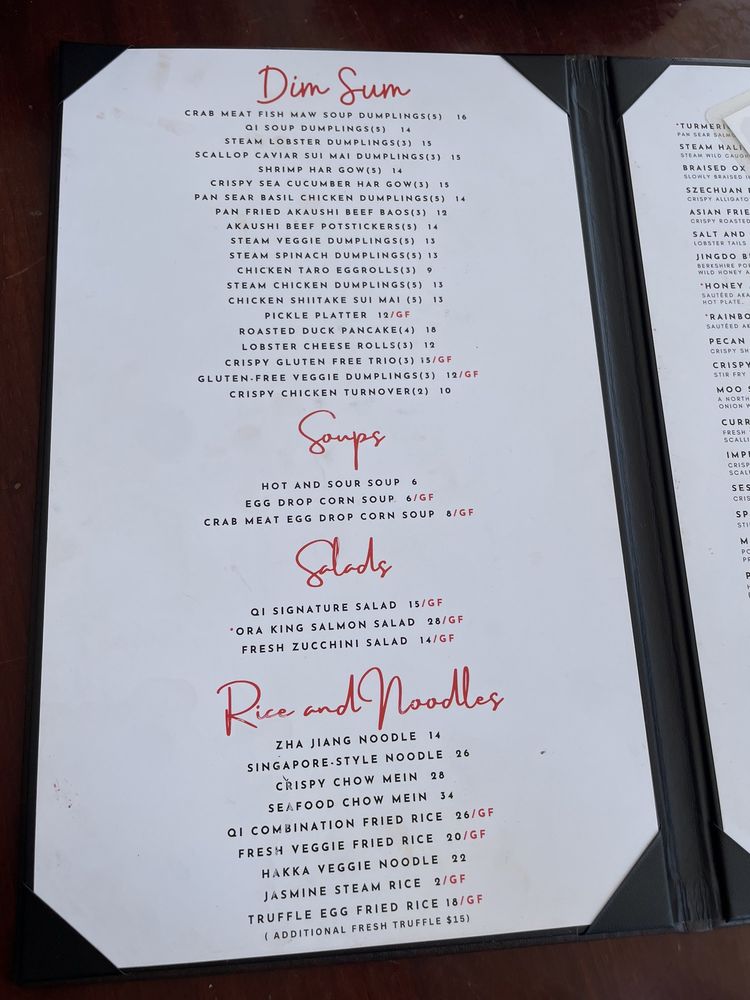 Dim Sum
CRAB MEAT FISH MAW SOUP DUMPLINGS(5) 16
QI SOUP DUMPLINGS(5) 14
STEAM LOBSTER DUMPLINGS(3) 15
SCALLOP CAVIAR SUI MAI DUMPLINGS(3) 15
SHRIMP HAR GOW(5) 14
CRISPY SEA CUCUMBER HAR GOW(3) 15
PAN SEAR BASIL CHICKEN DUMPLINGS(5) 14
PAN FRIED AKAUSHI BEEF BAOS(3) 12
AKAUSHI BEEF POTSTICKERS(5) 14
STEAM VEGGIE DUMPLINGS(5) 13
STEAM SPINACH DUMPLINGS(5) 13
CHICKEN TARO EGGROLLS(3) 9
STEAM CHICKEN DUMPLINGS(5) 13
CHICKEN SHIITAKE SUI MAI (5) 13
PICKLE PLATTER 12/GF
ROASTED DUCK PANCAKE(4) 18
LOBSTER CHEESE ROLLS(3) 12
CRISPY GLUTEN FREE TRIO(3) 15/GF
GLUTEN-FREE VEGGIE DUMPLINGS(3) 12/GF
CRISPY CHICKEN TURNOVER(2) 10
Soups
HOT AND SOUR SOUP 6
EGG DROP CORN SOUP 6/GF
CRAB MEAT EGG DROP CORN SOUP 8/GF
Salads
QI SIGNATURE SALAD 15/GF
*ORA KING SALMON SALAD 28/GF
FRESH ZUCCHINI SALAD 14/GF
Rice and Noodles
ZHA JIANG NOODLE 14
SINGAPORE-STYLE NOODLE 26
CRISPY CHOW MEIN 28
SEAFOOD CHOW MEIN 34
QI COMBINATION FRIED RICE 26/GF
FRESH VEGGIE FRIED RICE 20/GF
HAKKA VEGGIE NOODLE 22
JASMINE STEAM RICE 2/GF
TRUFFLE EGG FRIED RICE 18/GF
( ADDITIONAL FRESH TRUFFLE $15)
*TURMERI
PAN SEAR SALM
STEAM HALI
STEAM WILD CAUGH
BRAISED OX
SLOWLY BRAISED I
SZECHUAN
CRISPY ALLIGATO
ASIAN FRIE
CRISPY ROASTED
SALT AND
LOBSTER TAILS
JINGDO B
BERKSHIRE PO
WILD HONEY A
*HONEY
SAUTÉED AKA
HOT PLATE.
*RAINBO
SAUTÉED AK
PECAN
CRISPY SH
CRISPY
STIR FRY
MOO S
A NORTH
ONION W
CURR
FRESH
SCALLI
IMPE
CRISP
SCAL
SES
CRIS
SP
STI
M
PO
PR